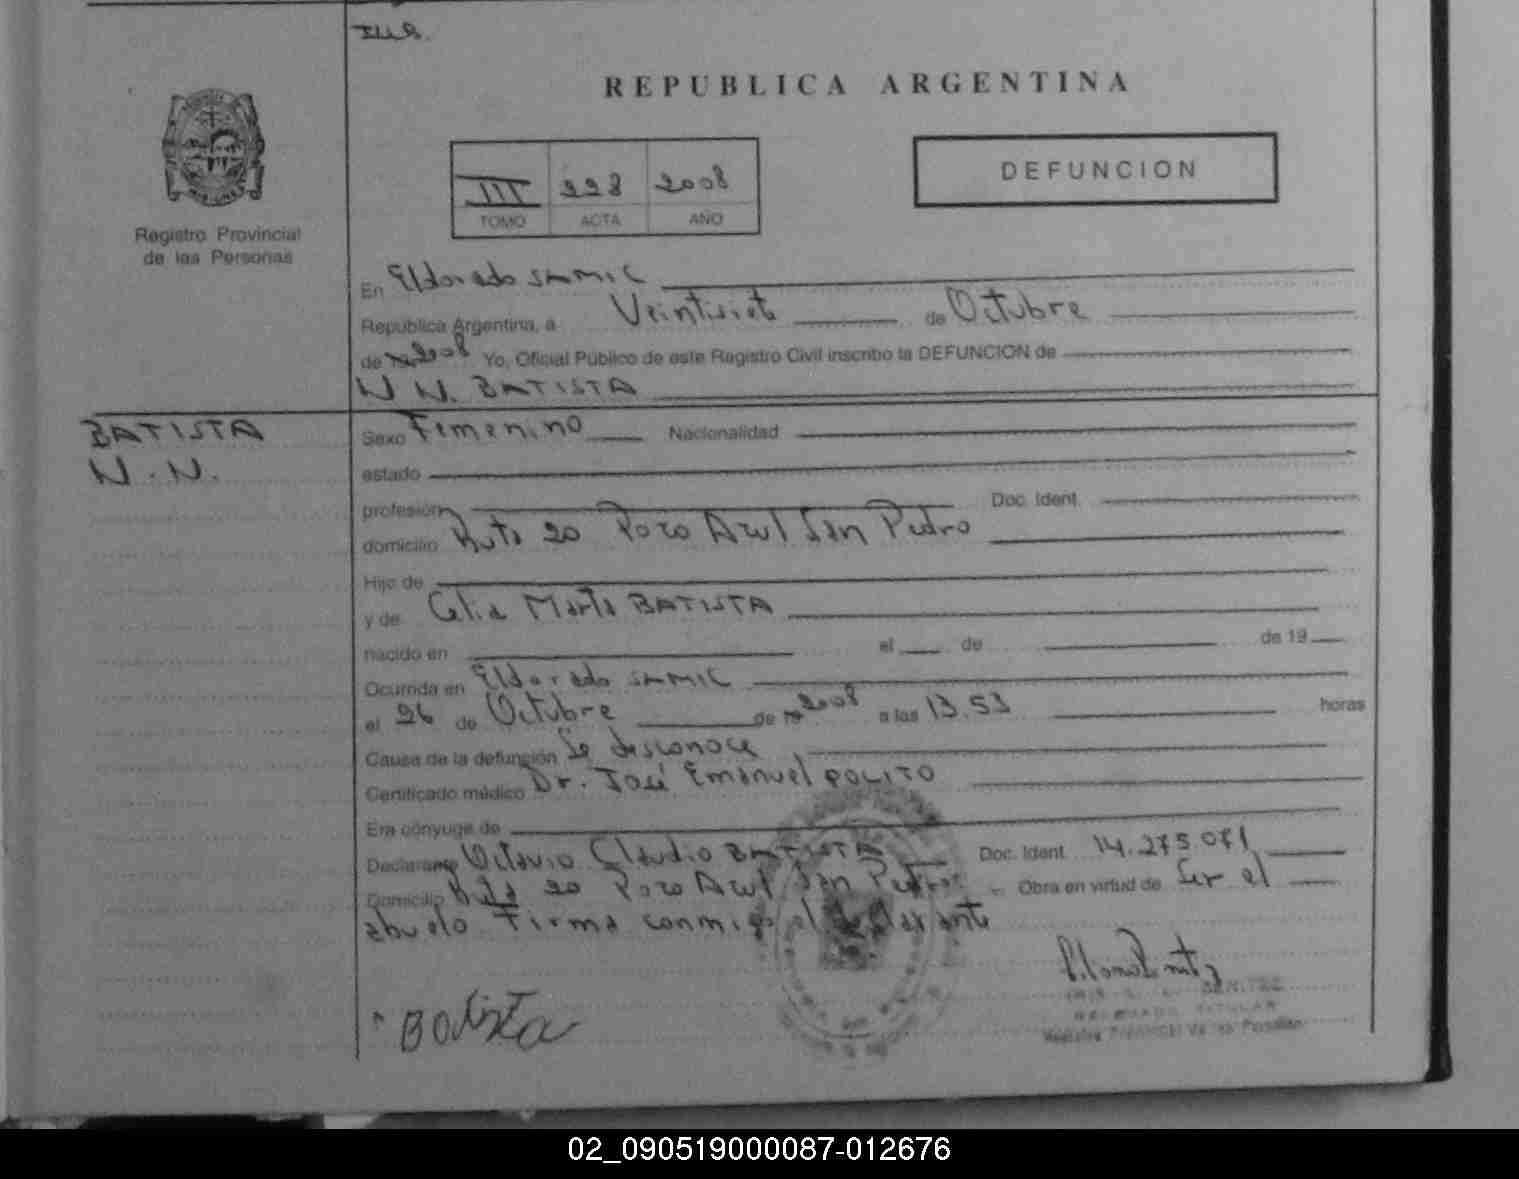 REPUBLICA ARGENTINA
III 228 2008
TOMO ACTA AÑO
DEFUNCION
Registro Provincial
de las Personas
En Eldorado SAMIC
Republica Argentina, a Veintisiete de Octubre
de 19 2008 Yo, Oficial Público de este Registro Civil inscribo la DEFUNCION de
N N. BATISTA
BATISTA
N.N.
Sexo Femenino Nacionalidad
estado
profesión Doc. Ident.
domicilio Ruta 20 Pozo Azul San Pedro
Hijo de
y de Celia Marta BATISTA
nacido en el de de 19
Ocurrida en Eldorado SAMIC
el 26 de Octubre de 19 2008 a las 13.53 horas
Causa de la defunción Se desconoce
Certificado médico Dr. José Emanuel POLITO
Era cónyuge de
Declarante Octavio Claudio BATISTA Doc. Ident. 14.275.071
Domicilio Ruta 20 Pozo Azul San Pedro Obra en virtud de Ser el
abuelo Firma conmigo el declarante
Batista
BENITEZ
TITULAR
02_090519000087-012676